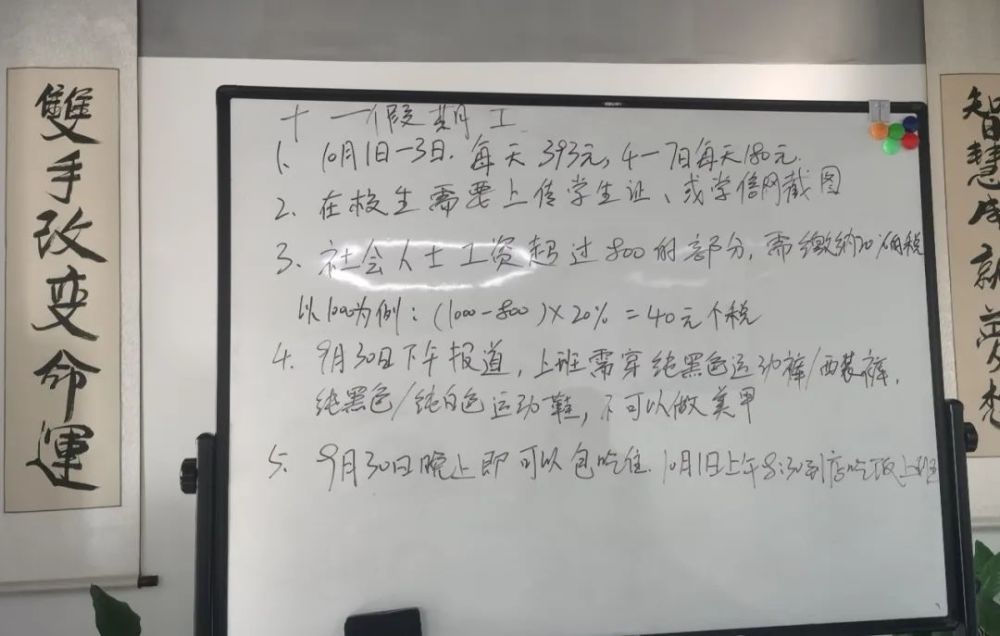 雙手改變命運
十一假期工
1、10月1日-3日. 每天393元, 4-7日每天180元.
2、在校生需要上传学生证、或学信网截图
3、社会人士工资超过800的部分, 需缴纳20%个税
以1000为例: (1000-800)×20%=40元个税
4、9月30日下午报道, 上班需穿纯黑色运动裤/西装裤,
纯黑色/纯白色运动鞋, 不可以做美甲
5、9月30日晚上即可以包吃住. 10月1日上午8:30到店吃饭上班
智慧成就夢想